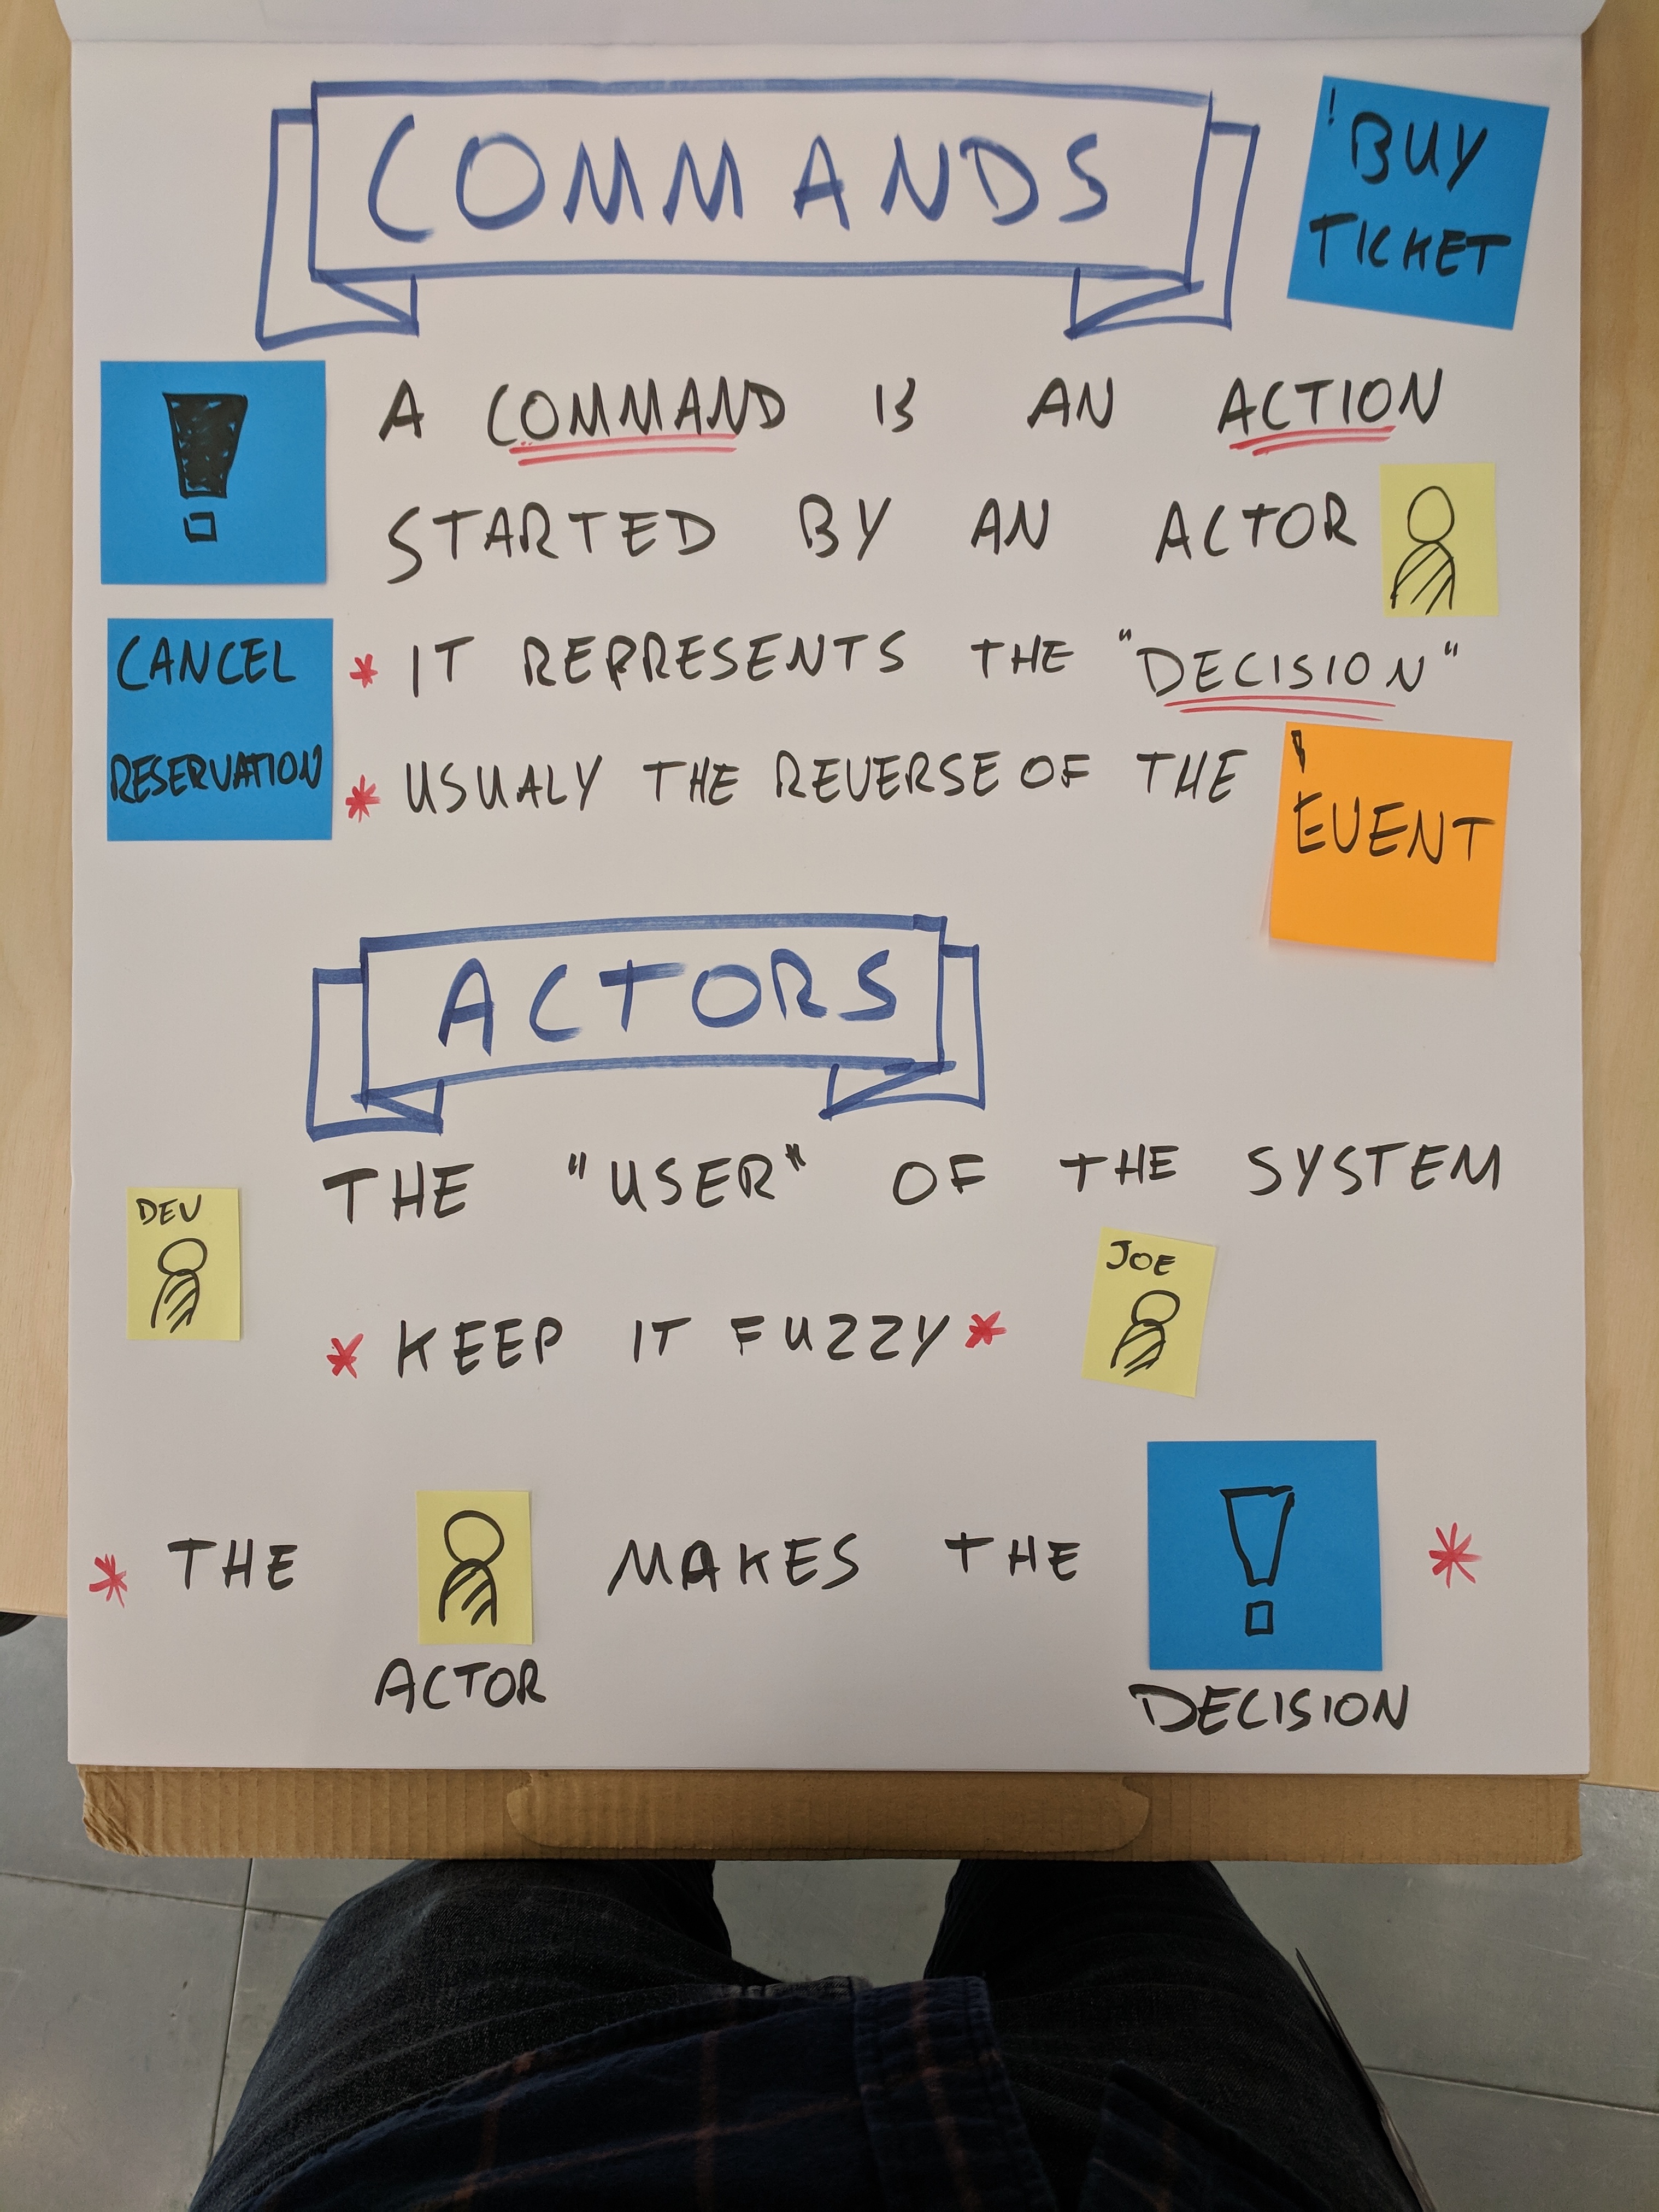 COMMANDS
! BUY
TICKET
!
A COMMAND IS AN ACTION
STARTED BY AN ACTOR
CANCEL
RESERVATION
* IT REPRESENTS THE "DECISION"
* USUALY THE REVERSE OF THE
! EVENT
ACTORS
THE "USER" OF THE SYSTEM
DEV
JOE
* KEEP IT FUZZY *
* THE MAKES THE ! *
ACTOR
DECISION